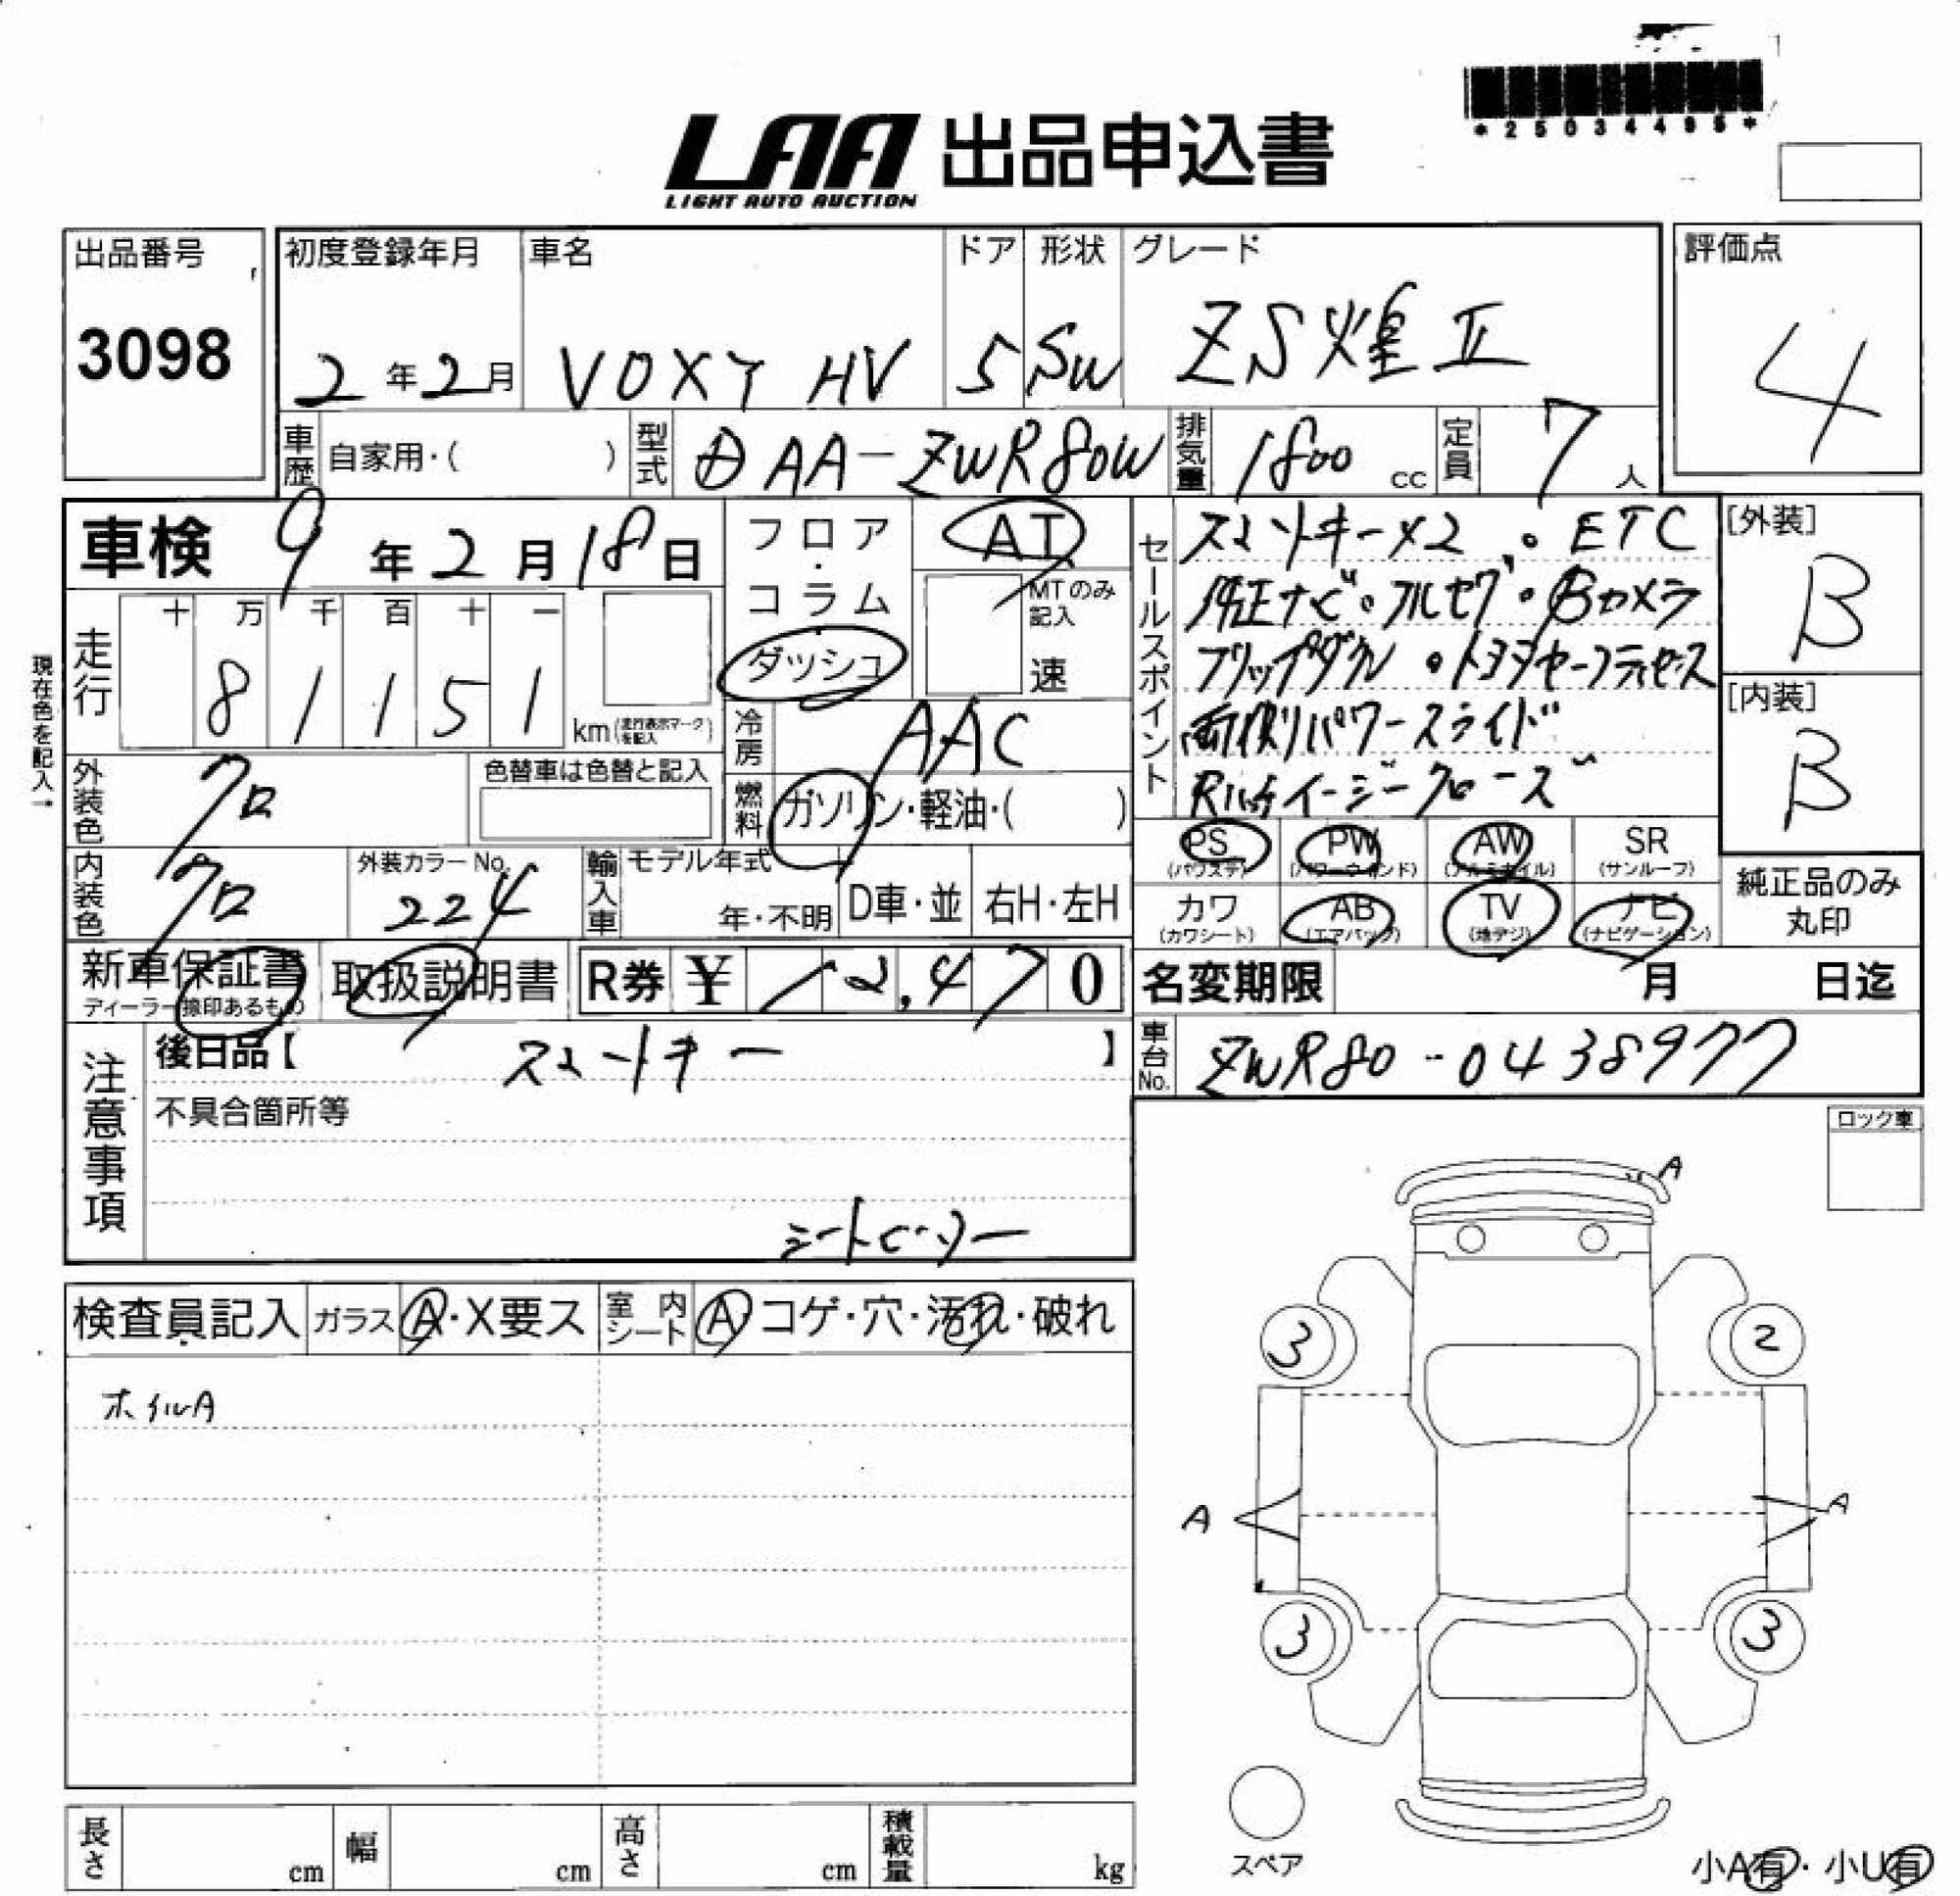 *25034495*
LAA 出品申込書
LIGHT AUTO AUCTION
出品番号 3098
初度登録年月 2年2月
車名 VOXY HV
ドア 5
形状 SW
グレード ZS煌Ⅱ
評価点 4
車歴 自家用・( )
型式 DAA-ZWR80W
排気量 1800 cc
定員 7 人
車検 9年2月18日
フロア・コラム ダッシュ
AT
MTのみ記入 速
セールスポイント
スマートキー×2 。ETC
純正ナビ・フルセグ・Bカメラ
フリップダウン・トヨタセーフティセンス
両側パワースライド
Rハッチイージークローズ
[外装] B
[内装] B
現在色を記入→
走行 十 万 千 百 十 一
81151 km(走行表示マークを記入)
冷房 AAC
燃料 ガソリン・軽油・( )
外装色 クロ
色替車は色替と記入
内装色 クロ
外装カラーNo. 224
輸入車 モデル年式 年・不明 D車・並 右H・左H
PS (パワステ) PW (パワーウインド) AW (アルミホイル) SR (サンルーフ)
カワ (カワシート) AB (エアバック) TV (地デジ) ナビ (ナビゲーション)
純正品のみ丸印
新車保証書 ディーラー捺印あるもの
取扱説明書
R券 ¥12,470
名変期限 月 日迄
車台No. ZWR80-0438977
注意事項
後日品【 スマートキー 】
不具合箇所等
シートヒーター
ロック車
検査員記入 ガラス A・X要ス 室内シート A コゲ・穴・汚れ・破れ
ホイルA
A
3 2
A A
3 3
スペア
小A有・小U有
長さ cm 幅 cm 高さ cm 積載量 kg